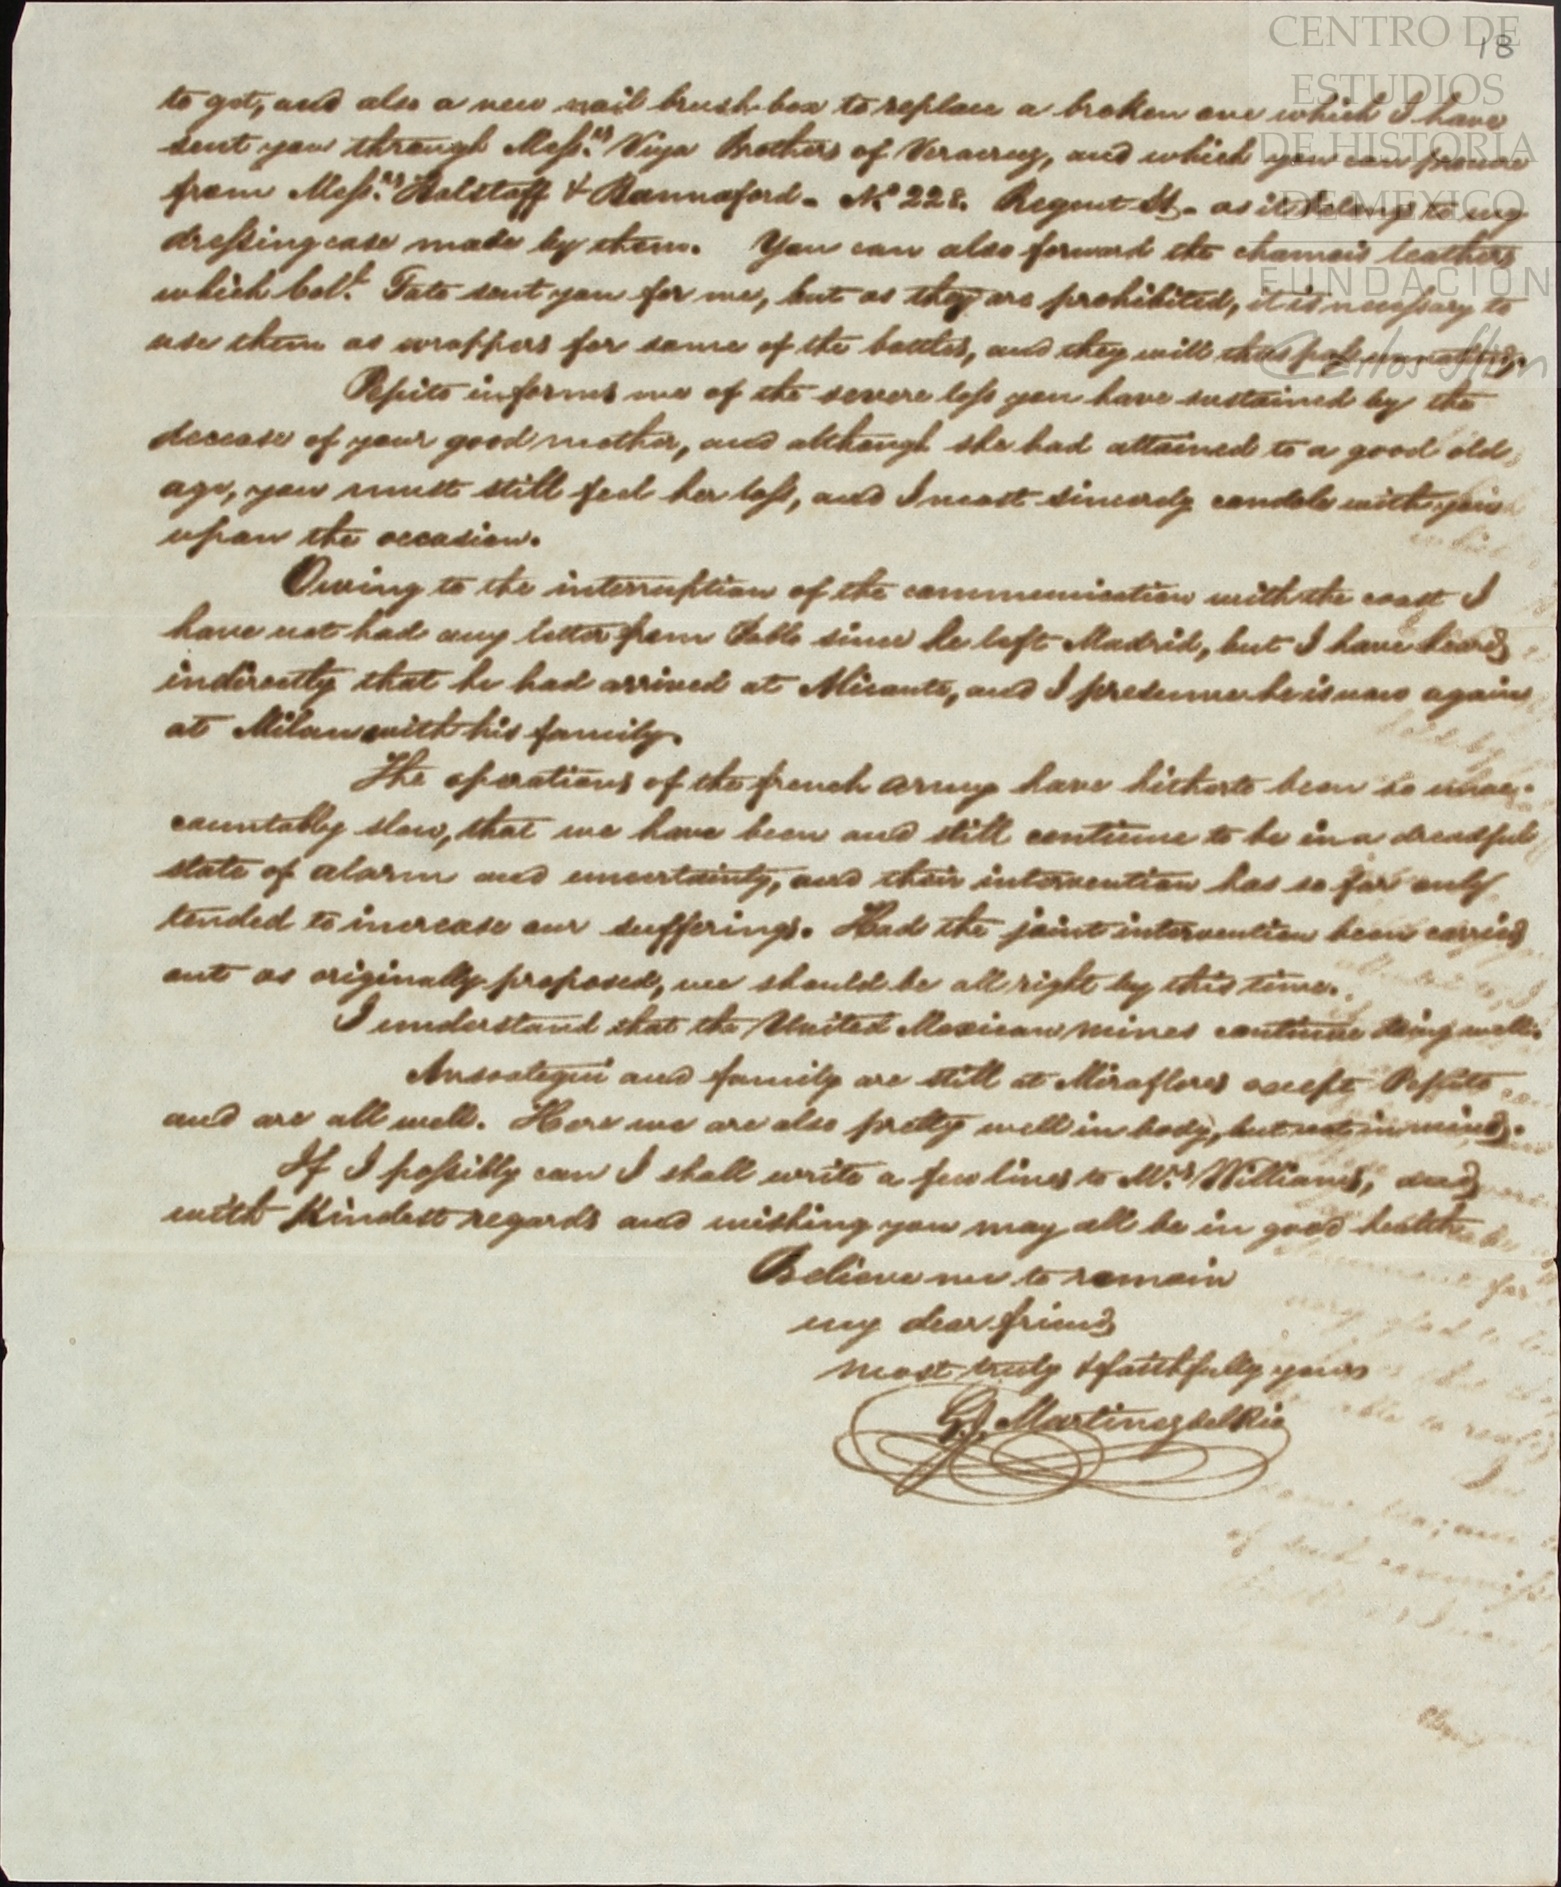 CENTRO DE
ESTUDIOS
DE HISTORIA
DE MEXICO
FUNDACION
Carlos Slim
18
to get, and also a new nail brush box to replace a broken one which I have
sent you through Mess.rs Viya Brothers of Veracruz, and which you can procure
from Mess.rs Halstaff & Hannaford - No. 228. Regent St. - as it belongs to my
dressing case made by them. You can also forward the chamois leathers
which Col.l Tate sent you for me, but as they are prohibited, it is necessary to
use them as wrappers for some of the bottles, and they will thus pass unnoticed.
Pepito informs me of the severe loss you have sustained by the
decease of your good mother, and although she had attained to a good old
age, you must still feel her loss, and I most sincerely condole with you
upon the occasion.
Owing to the interruption of the communication with the coast I
have not had any letter from Pablo since he left Madrid, but I have heard
indirectly that he had arrived at Alicante, and I presume he is now again
at Milan with his family.
The operations of the french army have hitherto been so unac-
countably slow, that we have been and still continue to be in a dreadful
state of alarm and uncertainty, and their intervention has so far only
tended to increase our sufferings. Had the joint intervention been carried
out as originally proposed, we should be all right by this time.
I understand that the United Mexican mines continue doing well.
Ansoategui and family are still at Miraflores except Pepito
and are all well. Here we are also pretty well in body, but not in mind.
If I possibly can I shall write a few lines to Mrs Williams, and
with kindest regards and wishing you may all be in good health
Believe me to remain
my dear friend
most truly & faithfully yours
G. J. Martinez del Rio